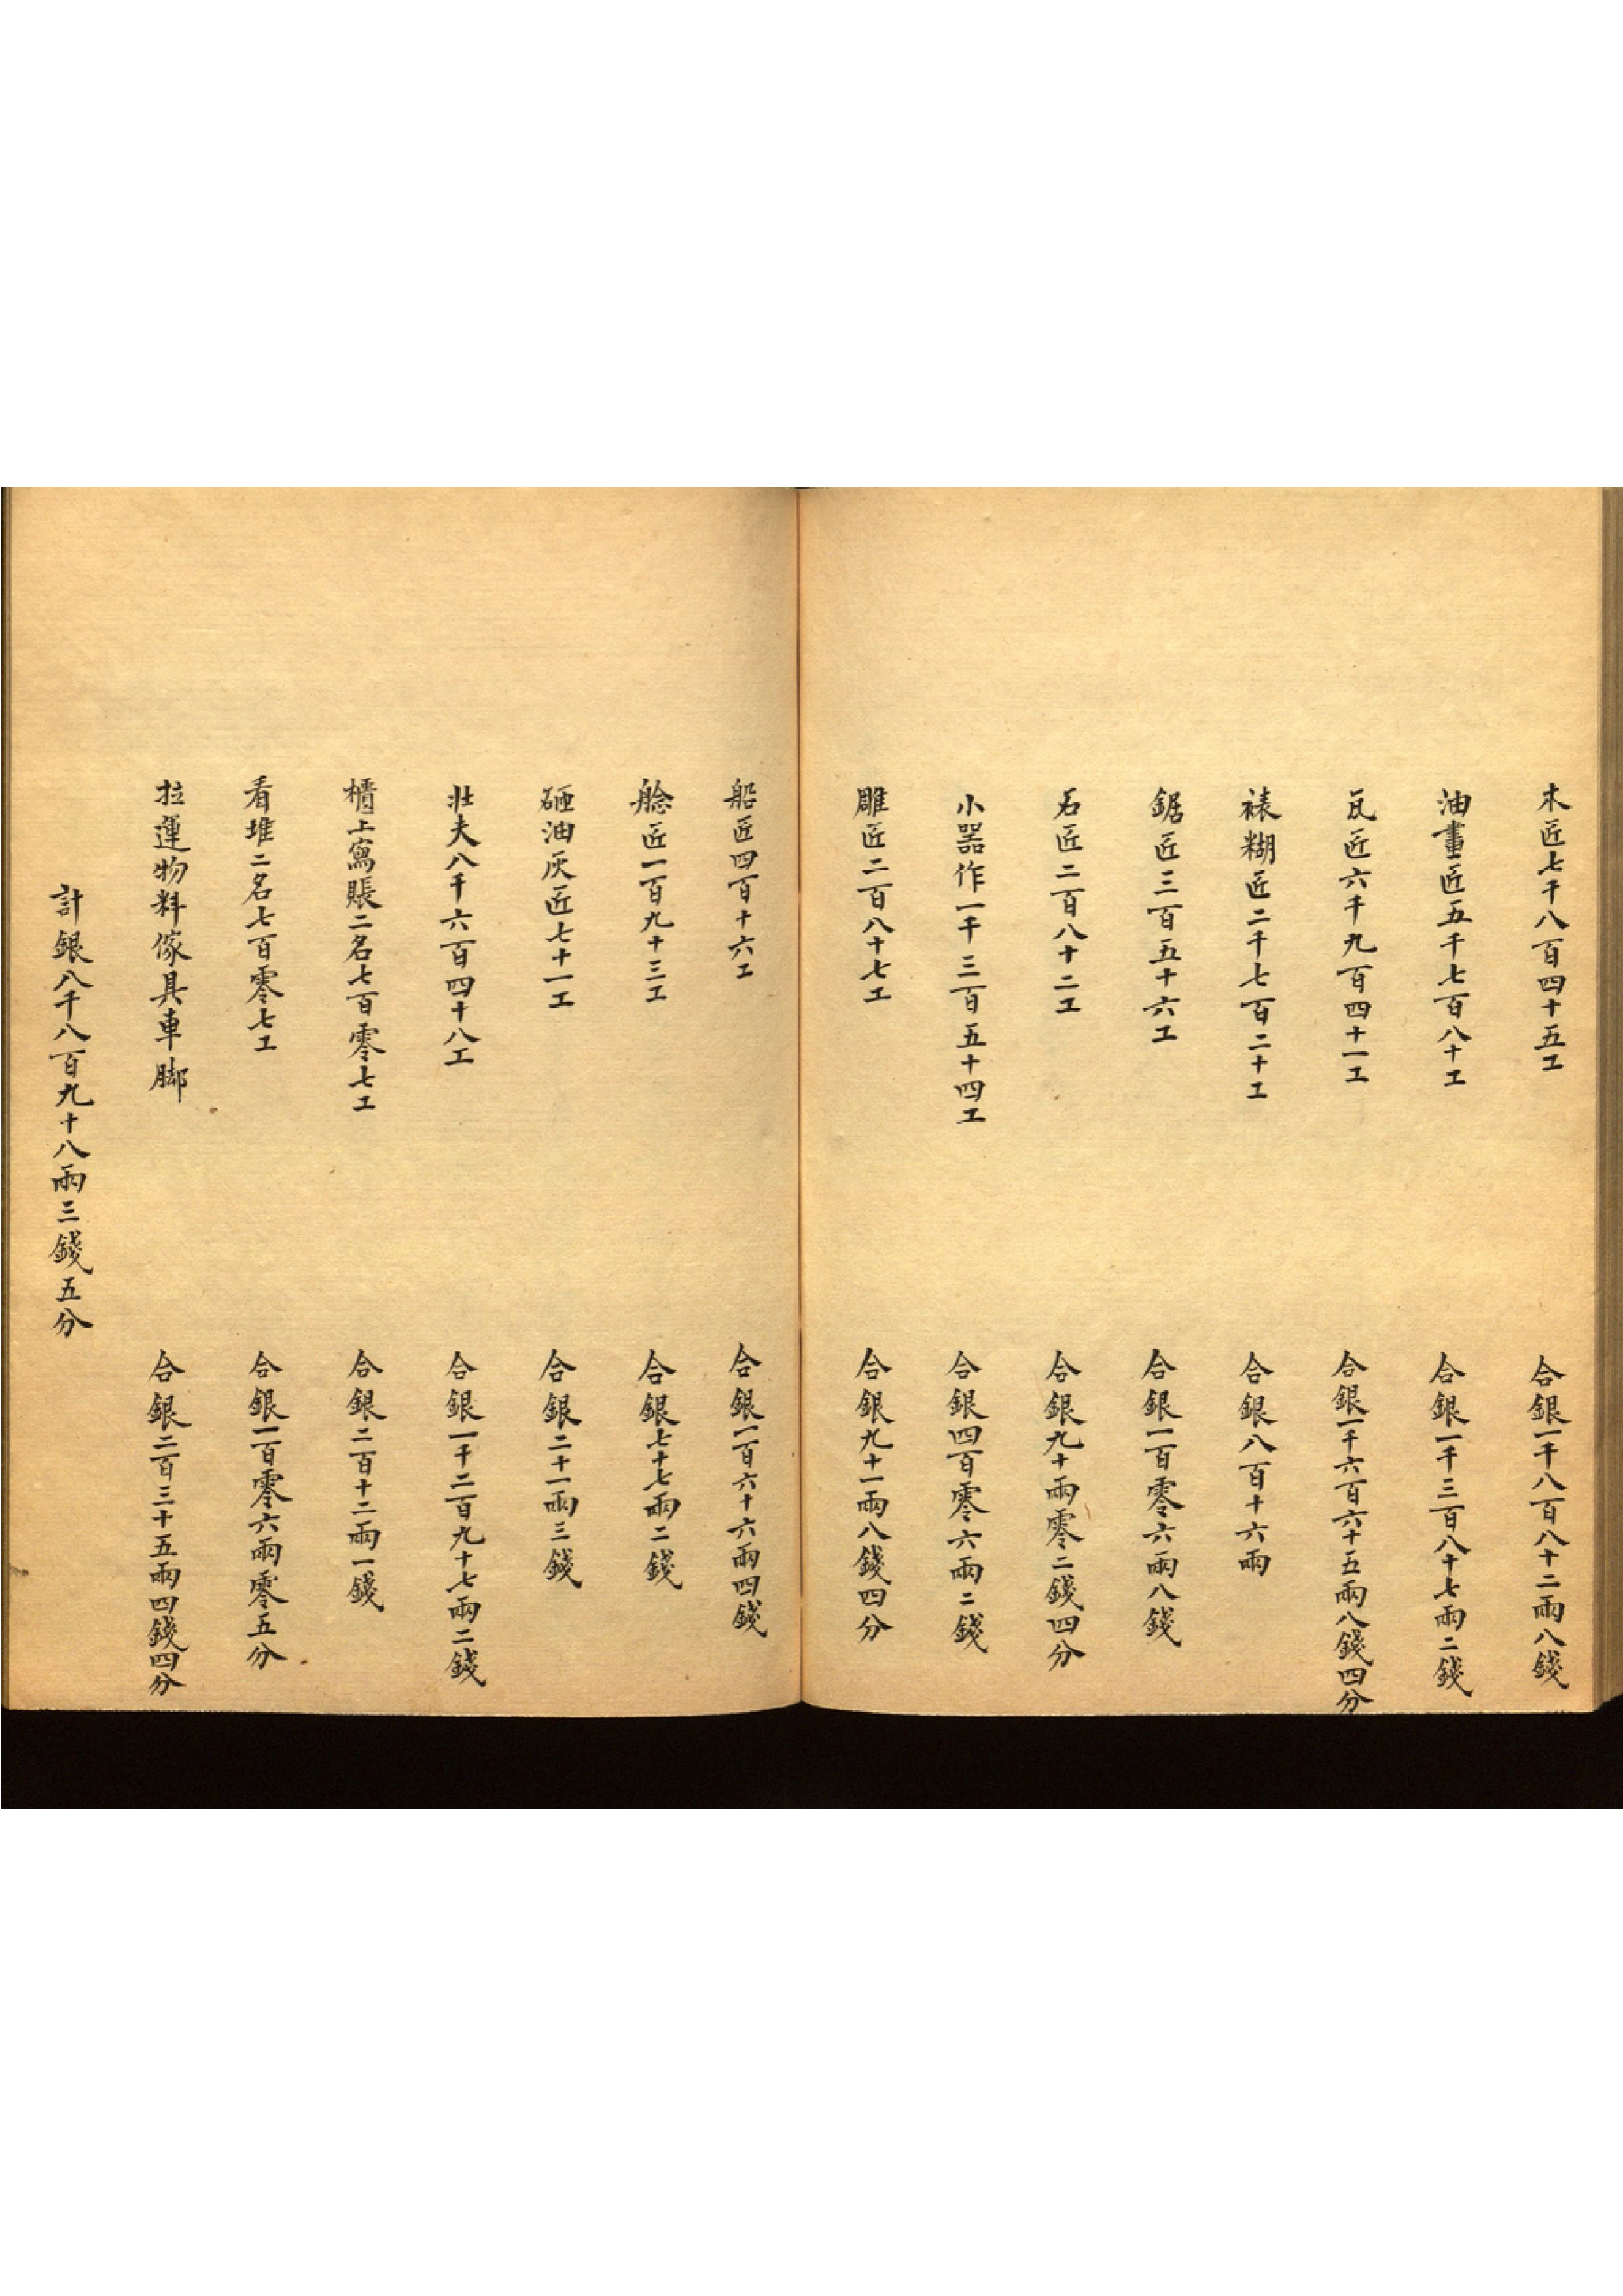 木匠七千八百四十五工　合銀一千八百八十二兩八錢
油畫匠五千七百八十工　合銀一千三百八十七兩二錢
瓦匠六千九百四十一工　合銀一千六百六十五兩八錢四分
裱糊匠二千七百二十工　合銀八百十六兩
鋸匠三百五十六工　合銀一百零六兩八錢
石匠二百八十二工　合銀九十兩零二錢四分
小器作一千三百五十四工　合銀四百零六兩二錢
雕匠二百八十七工　合銀九十一兩八錢四分
船匠四百十六工　合銀一百六十六兩四錢
艌匠一百九十三工　合銀七十七兩二錢
砸油灰匠七十一工　合銀二十一兩三錢
壯夫八千六百四十八工　合銀一千二百九十七兩二錢
櫃上寫賬二名七百零七工　合銀二百十二兩一錢
看堆二名七百零七工　合銀一百零六兩零五分
拉運物料傢具車腳　合銀二百三十五兩四錢四分
計銀八千八百九十八兩三錢五分